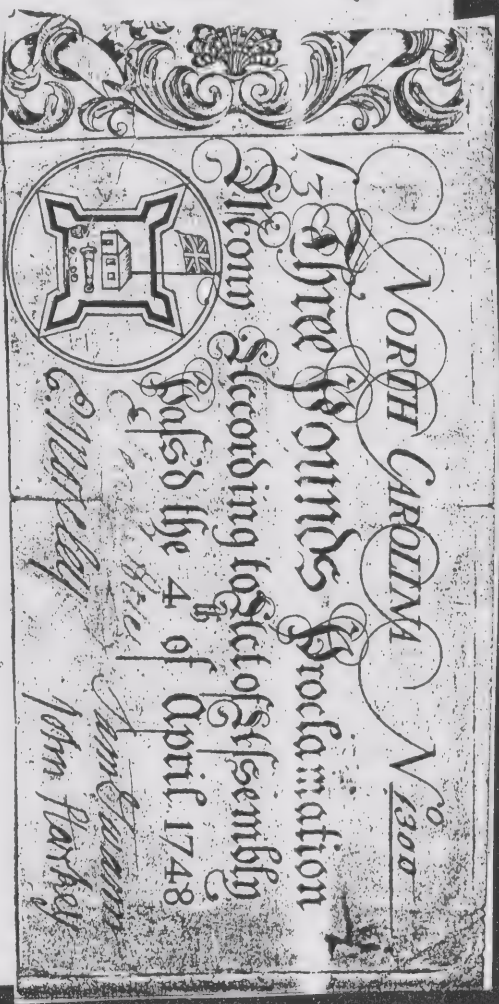 NORTH CAROLINA No 1300
£3 Three Pounds Proclamation
Money According to Act of Assembly
Paſsd the 4th of April 1748
Sam Swann
E. Moseley John Harvey